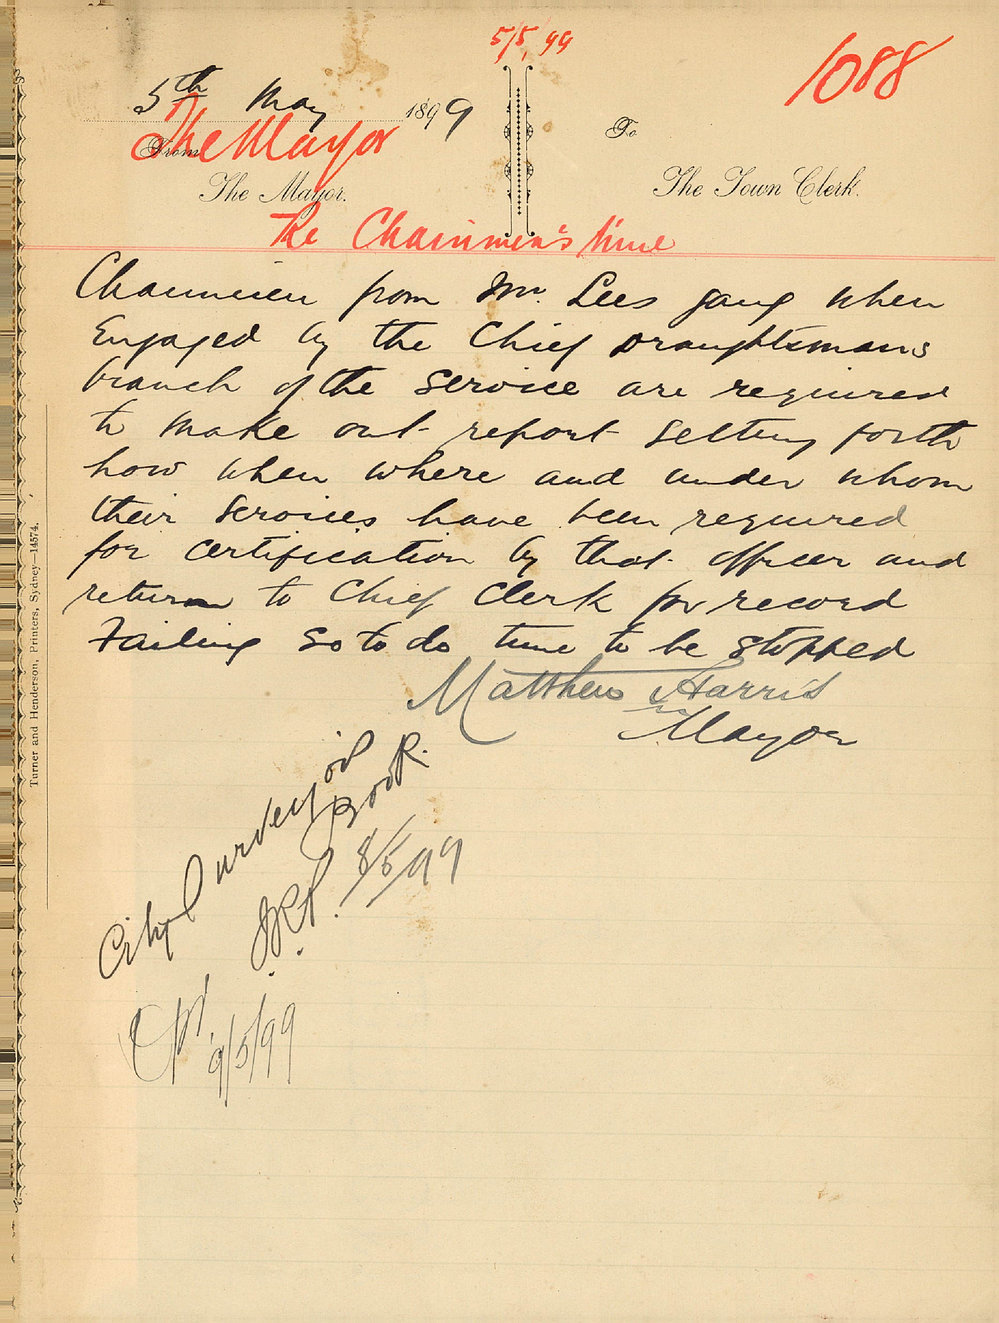 5/5/99
1088
5th May 1899
The Mayor
From
The Mayor.
To
The Town Clerk.
The Chainmen's time
Chainmen from Mr. Lees gang when
Engaged by the Chief Draughtsmans
branch of the Service are required
to make out report setting forth
how when where and under whom
their Services have been required
for certification by that officer and
return to Chief Clerk for record
Failing so to do time to be stopped
Matthew Harris
Mayor
City Surveyor
Book.
8/5/99
9/5/99
Turner and Henderson, Printers, Sydney—14574.